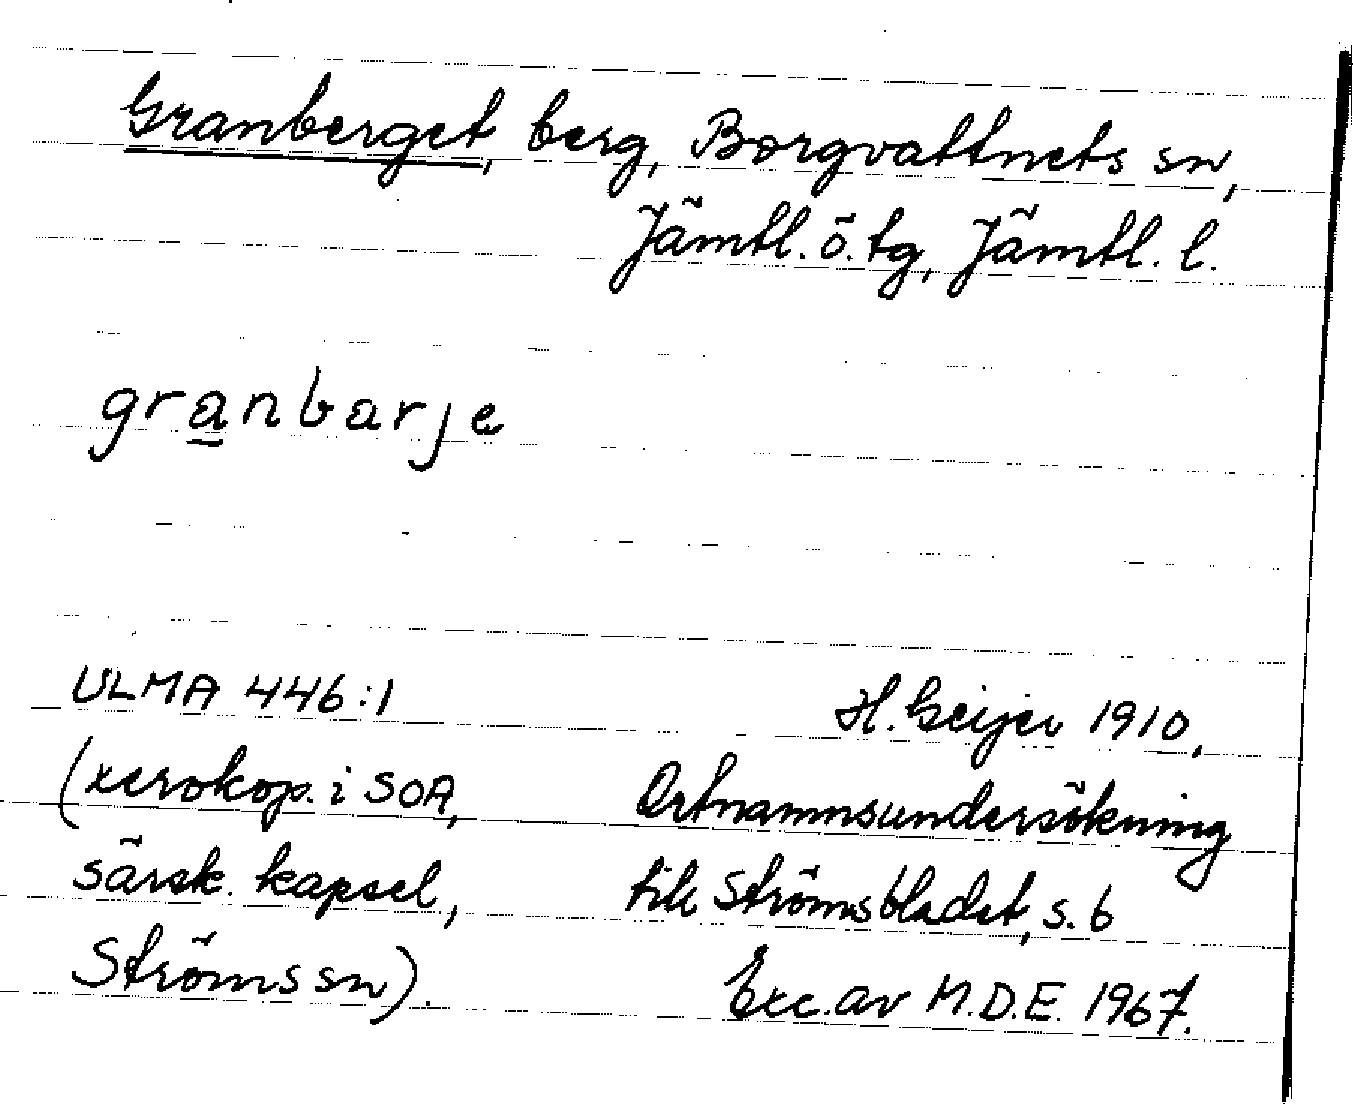 Granberget, berg, Borgvattnets sn,
Jämtl. ö. tg, Jämtl. l.
granbarje
ULMA 446:1
(xerokop. i SOA,
särsk. kapsel,
Ströms sn).
H. Geijer 1910,
Ortnamnsundersökning
till Strömsbladet, s. 6
Exc. av M.D.E. 1967.